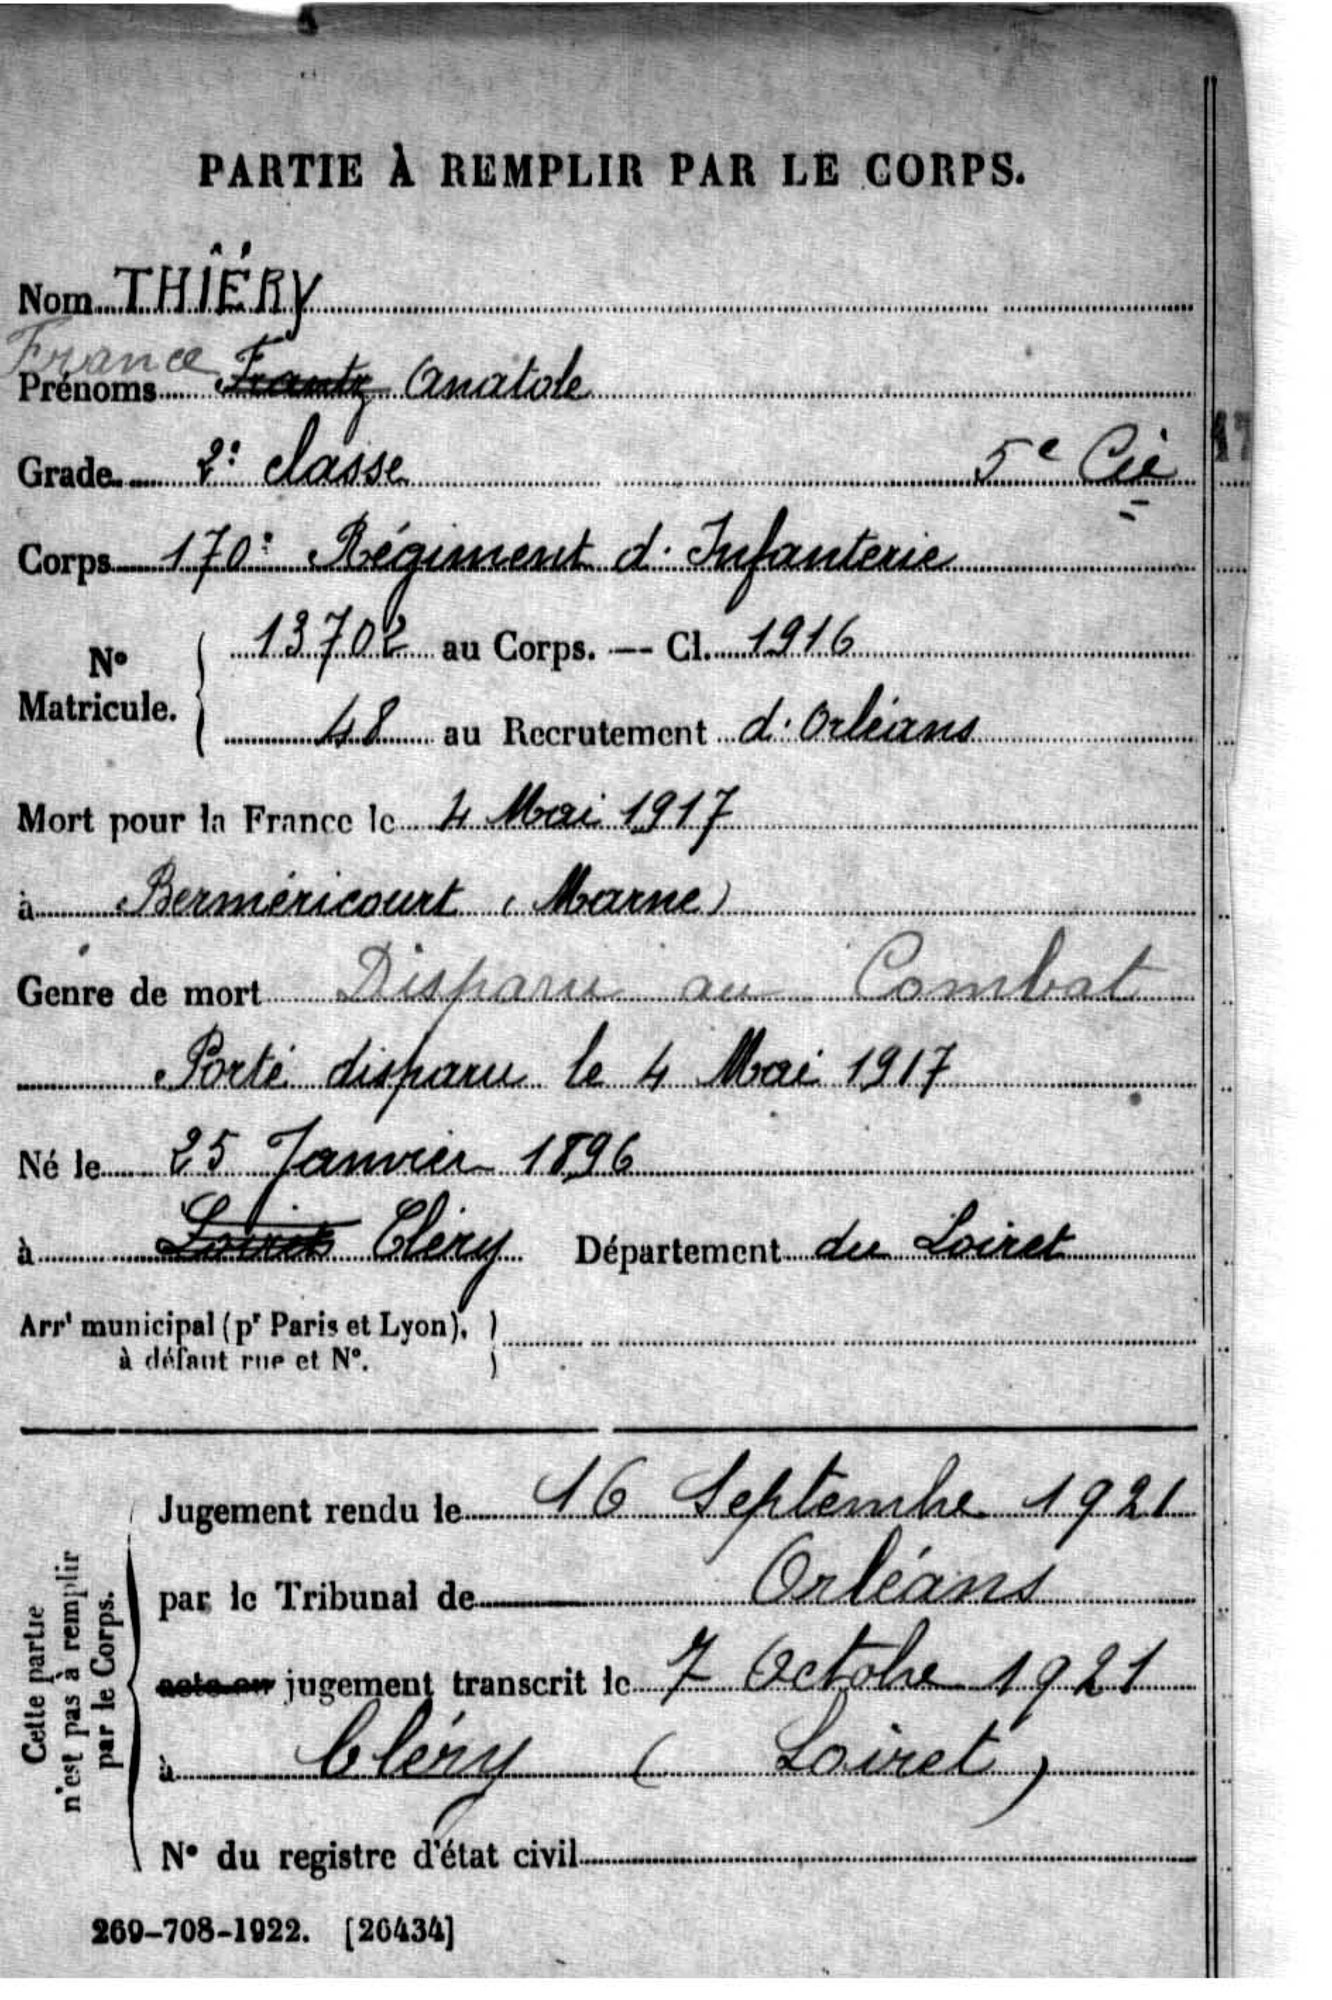 PARTIE À REMPLIR PAR LE CORPS.
Nom THÎÉRY
France
Prénoms Frantz Anatole
Grade 2e classe 5e Cie
Corps 170e Régiment d'Infanterie
No Matricule. 13702 au Corps. — Cl. 1916
48 au Recrutement d'Orléans
Mort pour la France le 4 Mai 1917
à Berméricourt (Marne)
Genre de mort Disparu au Combat
Porté disparu le 4 Mai 1917
Né le 25 Janvier 1896
à Loiret Cléry Département du Loiret
Arrt municipal (pr Paris et Lyon),
à défaut rue et No.
Cette partie n'est pas à remplir par le Corps.
Jugement rendu le 16 Septembre 1921
par le Tribunal de Orléans
acte ou jugement transcrit le 7 Octobre 1921
à Cléry (Loiret)
No du registre d'état civil
269-708-1922. [26434]